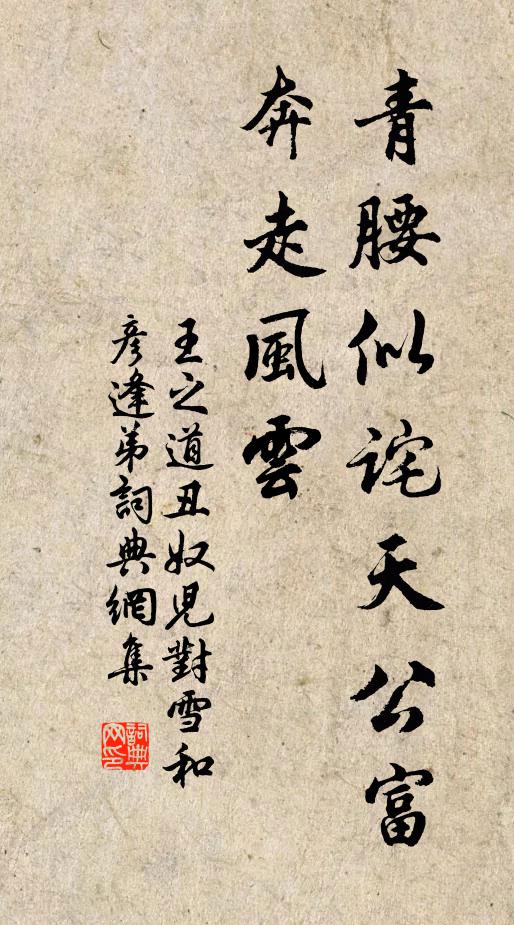 青腰似詫天公富
奔走風雲
王之道丑奴兒對雪和
彥逢弟詞典網集
詞典網印